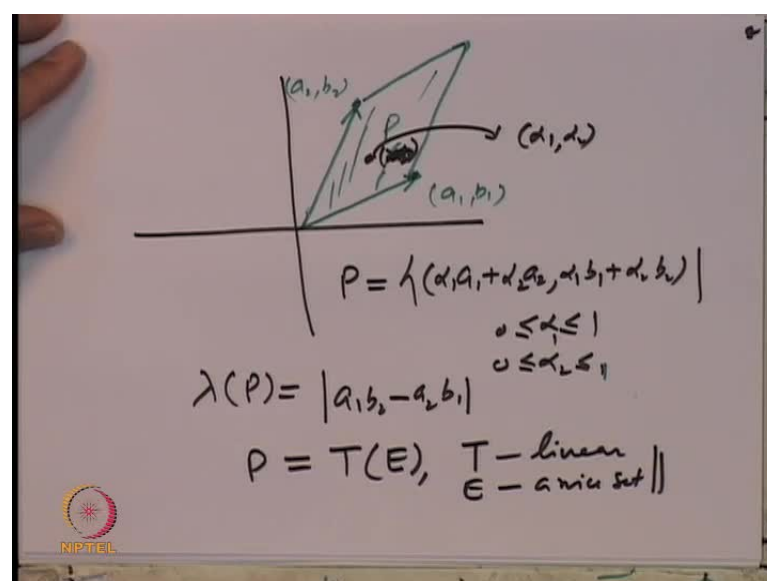 (a₂,b₂)
P
(α₁,α₂)
(a₁,b₁)
P = {(α₁a₁+α₂a₂, α₁b₁+α₂b₂) |
0 ≤ α₁ ≤ 1
0 ≤ α₂ ≤ 1
λ(P) = |a₁b₂ − a₂b₁|
P = T(E), T – linear
E – a nice set ||
NPTEL